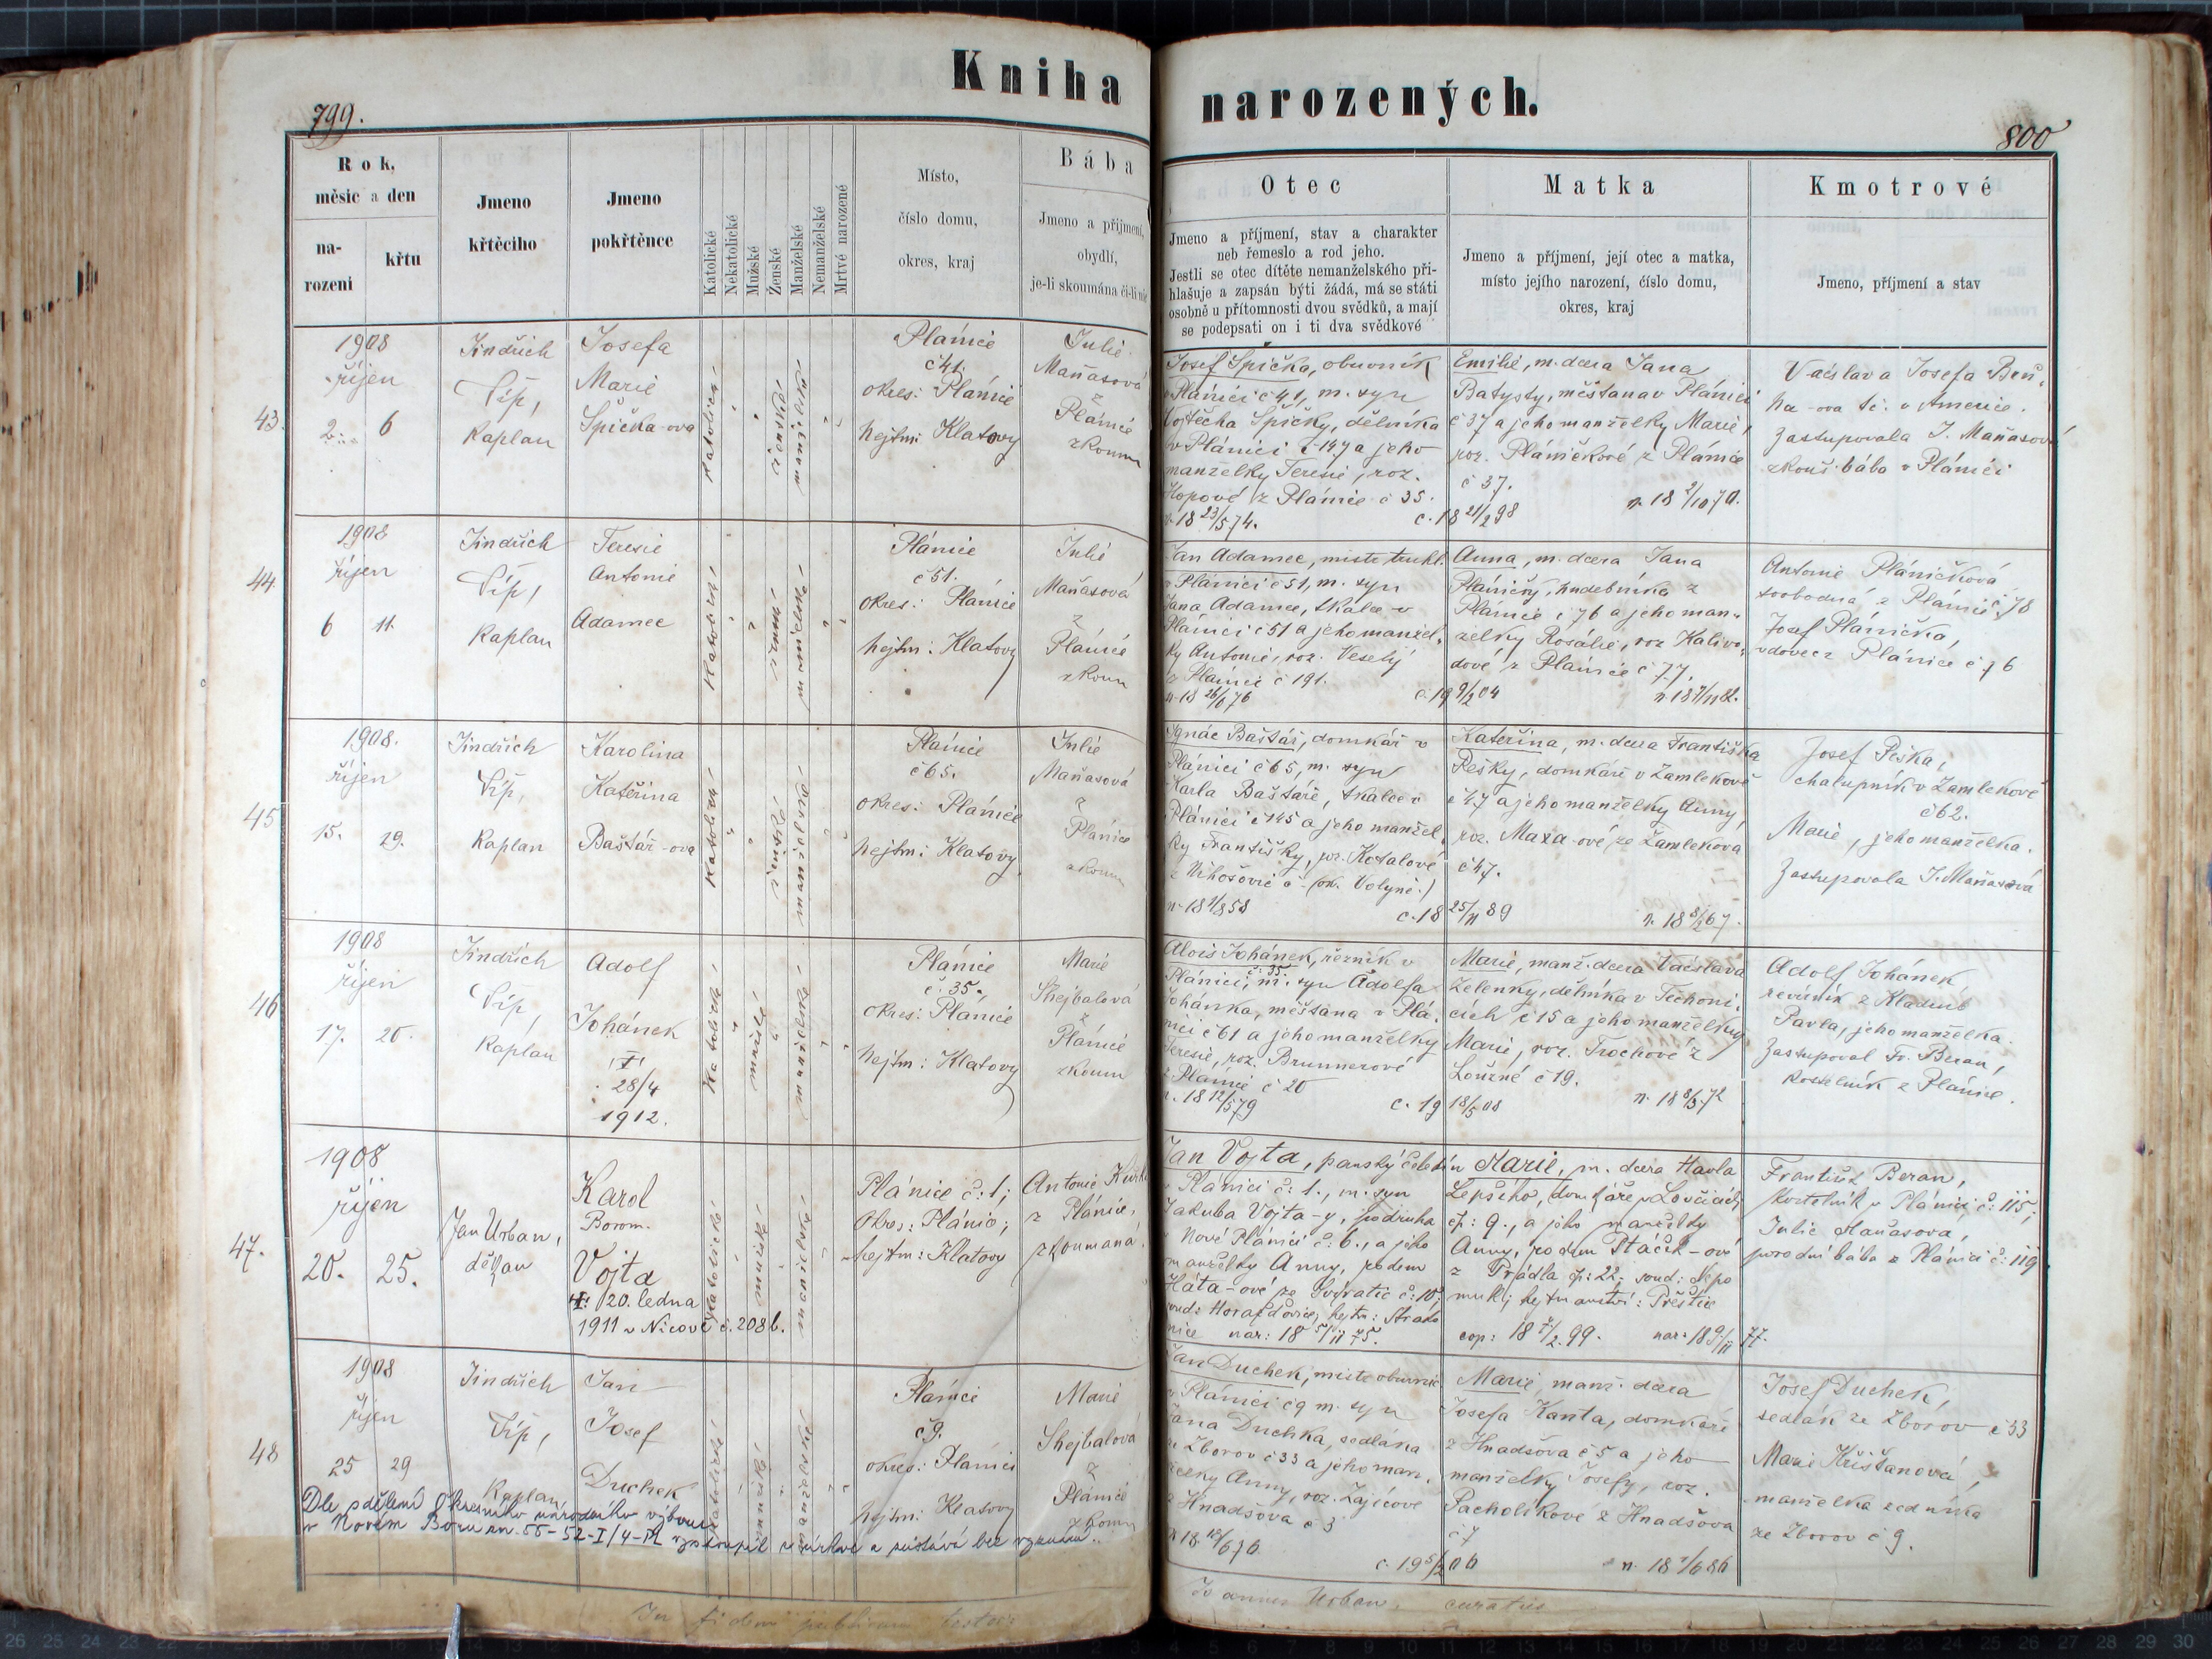 Kniha
narozených.
799.
800
Rok,
měsíc a den
na-
rozeni
křtu
Jmeno
křtěcího
Jmeno
pokřtěnce
Katolické
Nekatolické
Mužské
Ženské
Manželské
Nemanželské
Mrtvé narozené
Místo,
číslo domu,
okres, kraj
Bába
Jmeno a příjmení,
obydlí,
je-li zkoumána či-li nic
Otec
Jmeno a příjmení, stav a charakter
neb řemeslo a rod jeho.
Jestli se otec dítěte nemanželského při-
hlašuje a zapsán býti žádá, má se státi
osobně u přítomnosti dvou svědků, a mají
se podepsati on i ti dva svědkové
Matka
Jmeno a příjmení, její otec a matka,
místo jejího narození, číslo domu,
okres, kraj
Kmotrové
Jmeno, příjmení a stav
43.
1908
říjen
2. 6
Jindřich
Líp,
Kaplan
Josefa
Marie
Špička-ova
katolické
ženské
manželské
Plánice
č 41.
okres: Plánice
hejtm: Klatovy
Julie
Maňasová
z
Plánice
zkoum
Josef Špička, obuvník
v Plánici č 41, m. syn
Vojtěcha Špičky, dělníka
v Plánici č 147 a jeho
manželky Teresie, roz.
Kopové z Plánice č 35.
n. 18 23/5 74.
c. 18 21/2 98
Emilie, m. dcera Jana
Batysty, měšťana v Plánici
č 37 a jeho manželky Marie,
roz. Pláničkové z Plánice
č 37.
n. 18 2/10 70.
Václav a Josefa
-ova t. č. v Americe.
Zastupovala J. Maňasová
zkouš. bába v Plánici
44.
1908
říjen
6 11.
Jindřich
Líp,
Kaplan
Teresie
Antonie
Adamec
katolické
ženské
manželské
Plánice
č 51.
okres: Plánice
hejtm: Klatovy
Julie
Maňasová
z
Plánice
zkoum
Jan Adamec, mistr truhl.
v Plánici č 51, m. syn
Jana Adamce, tkalce v
Plánici č 51 a jeho manžel.
ky Antonie, roz. Veselý
z Plánice č 191.
n. 18 26/6 76
c. 19 9/2 04
Anna, m. dcera Jana
Pláničky, hudebníka z
Plánice č 76 a jeho man-
želky Rosálie, roz. Kalivo-
dové z Plánice č 77.
n 18 7/11 82.
Antonie Pláničková
svobodná z Plánice č 78
Josef Plánička,
vdovec z Plánice č 76
45
1908.
říjen
15. 19.
Jindřich
Líp,
Kaplan
Karolina
Kateřina
Baštář-ova
katolické
ženské
manželské
Plánice
č 65.
okres: Plánice
hejtm: Klatovy
Julie
Maňasová
z
Plánice
zkoum
Ignác Baštář, domkář v
Plánici č 65, m. syn
Karla Baštáře, tkalce v
Plánici č 145 a jeho manžel.
ky Františky, roz. Kotalové
z Nihošovic č - (ok. Volyně.)
n. 18 1/8 58
c. 18 25/11 89
Kateřina, m. dcera Františka
Pešky, domkáře v Zamlekově
č 47 a jeho manželky Anny,
roz. Maxa-ové ze Zamlekova
č 47.
n. 18 8/2 67.
Josef Peška,
chalupník v Zamlekově
č 62.
Marie, jeho manželka.
Zastupovala J. Maňasová
46
1908
říjen
17. 20.
Jindřich
Líp,
Kaplan
Adolf
Johánek
28/4
1912.
katolické
mužské
manželské
Plánice
č. 35.
okres: Plánice
hejtm: Klatovy
Marie
Shejbalová
z
Plánice
zkoum
Alois Johánek, řezník v
Plánici, č. 35. m. syn Adolfa
Johánka, měšťana v Plá.
nici č 61 a jeho manželky
Teresie, roz. Brunnerové
z Plánice č 20
n. 18 12/5 79
c. 19 18/5 08
Marie, manž. dcera Václava
Zelenky, dělníka v Těchoni.
cích č 15 a jeho manželky
Marie, roz. Trochové z
Loužné č 19.
n. 18 8/3 72
Adolf Johánek
revírník z Kladrub
Pavla, jeho manželka.
Zastupoval Fr. Beran,
kostelník z Plánice.
47.
1908
říjen
20. 25.
Jan Urban,
děkan
Karel
Borom.
Vojta
20. ledna
1911 v Nicově č. 208 b.
katolické
mužské
manželské
Plánice č: 1;
Okres: Plánice;
hejtm: Klatovy
Antonie
z Plánice,
zkoumaná.
Jan Vojta, panský čeledín
v Plánici č: 1., m. syn
Jakuba Vojta-y, podruha
v Nové Plánici č: 6., a jeho
manželky Anny, rodem
Háta-ové ze Svíratic č: 10;
soud: Horažďovice; hejtm: Strako
nice nar: 18 5/11 75.
Marie, m. dcera Havla
Lepšího, domkáře v Lovčicích
čp: 9., a jeho manželky
Anny, rodem Ptáček-ové
z Prádla čp: 22, soud: Nepo
muk; hejtmanství: Přeštice
cop: 18 7/2 99. nar: 18 9/11 77.
František Beran,
kostelník v Plánici č: 115;
Julie Maňasova,
porodní bába z Plánice č: 119
48
1908
říjen
25 29
Jindřich
Líp,
Kaplan
Jan
Josef
Duchek
katolické
mužské
manželské
Plánici
č 9.
okres: Plánici
hejtm: Klatovy
Marie
Shejbalová
z
Plánice
zkoum
Dle sdělení Okresního národního výboru
v Novém Boru zn. 55-52-I/4-Pl vystoupil z církve a zůstává bez vyznání.
Jan Duchek, mistr obuvnic
v Plánici č 9 m. syn
Jana Duchka, sedláka
ze Zborov č 33 a jeho man.
želky Anny, roz. Zajícové
z Hnačova č 3
n 18 12/6 76
c. 19 5/2 06
Marie, manž. dcera
Josefa Kanta, domkáře
z Hnadšova č 5 a jeho
manželky Josefy, roz.
Pacholíkové z Hnadšova
č 7
n. 18 7/6 86
Josef Duchek,
sedlák ze Zborov č 33
Marie Křišťanová,
manželka zedníka
ze Zborov č 9.
In fidem publicam testor:
Joannes Urban, curatus